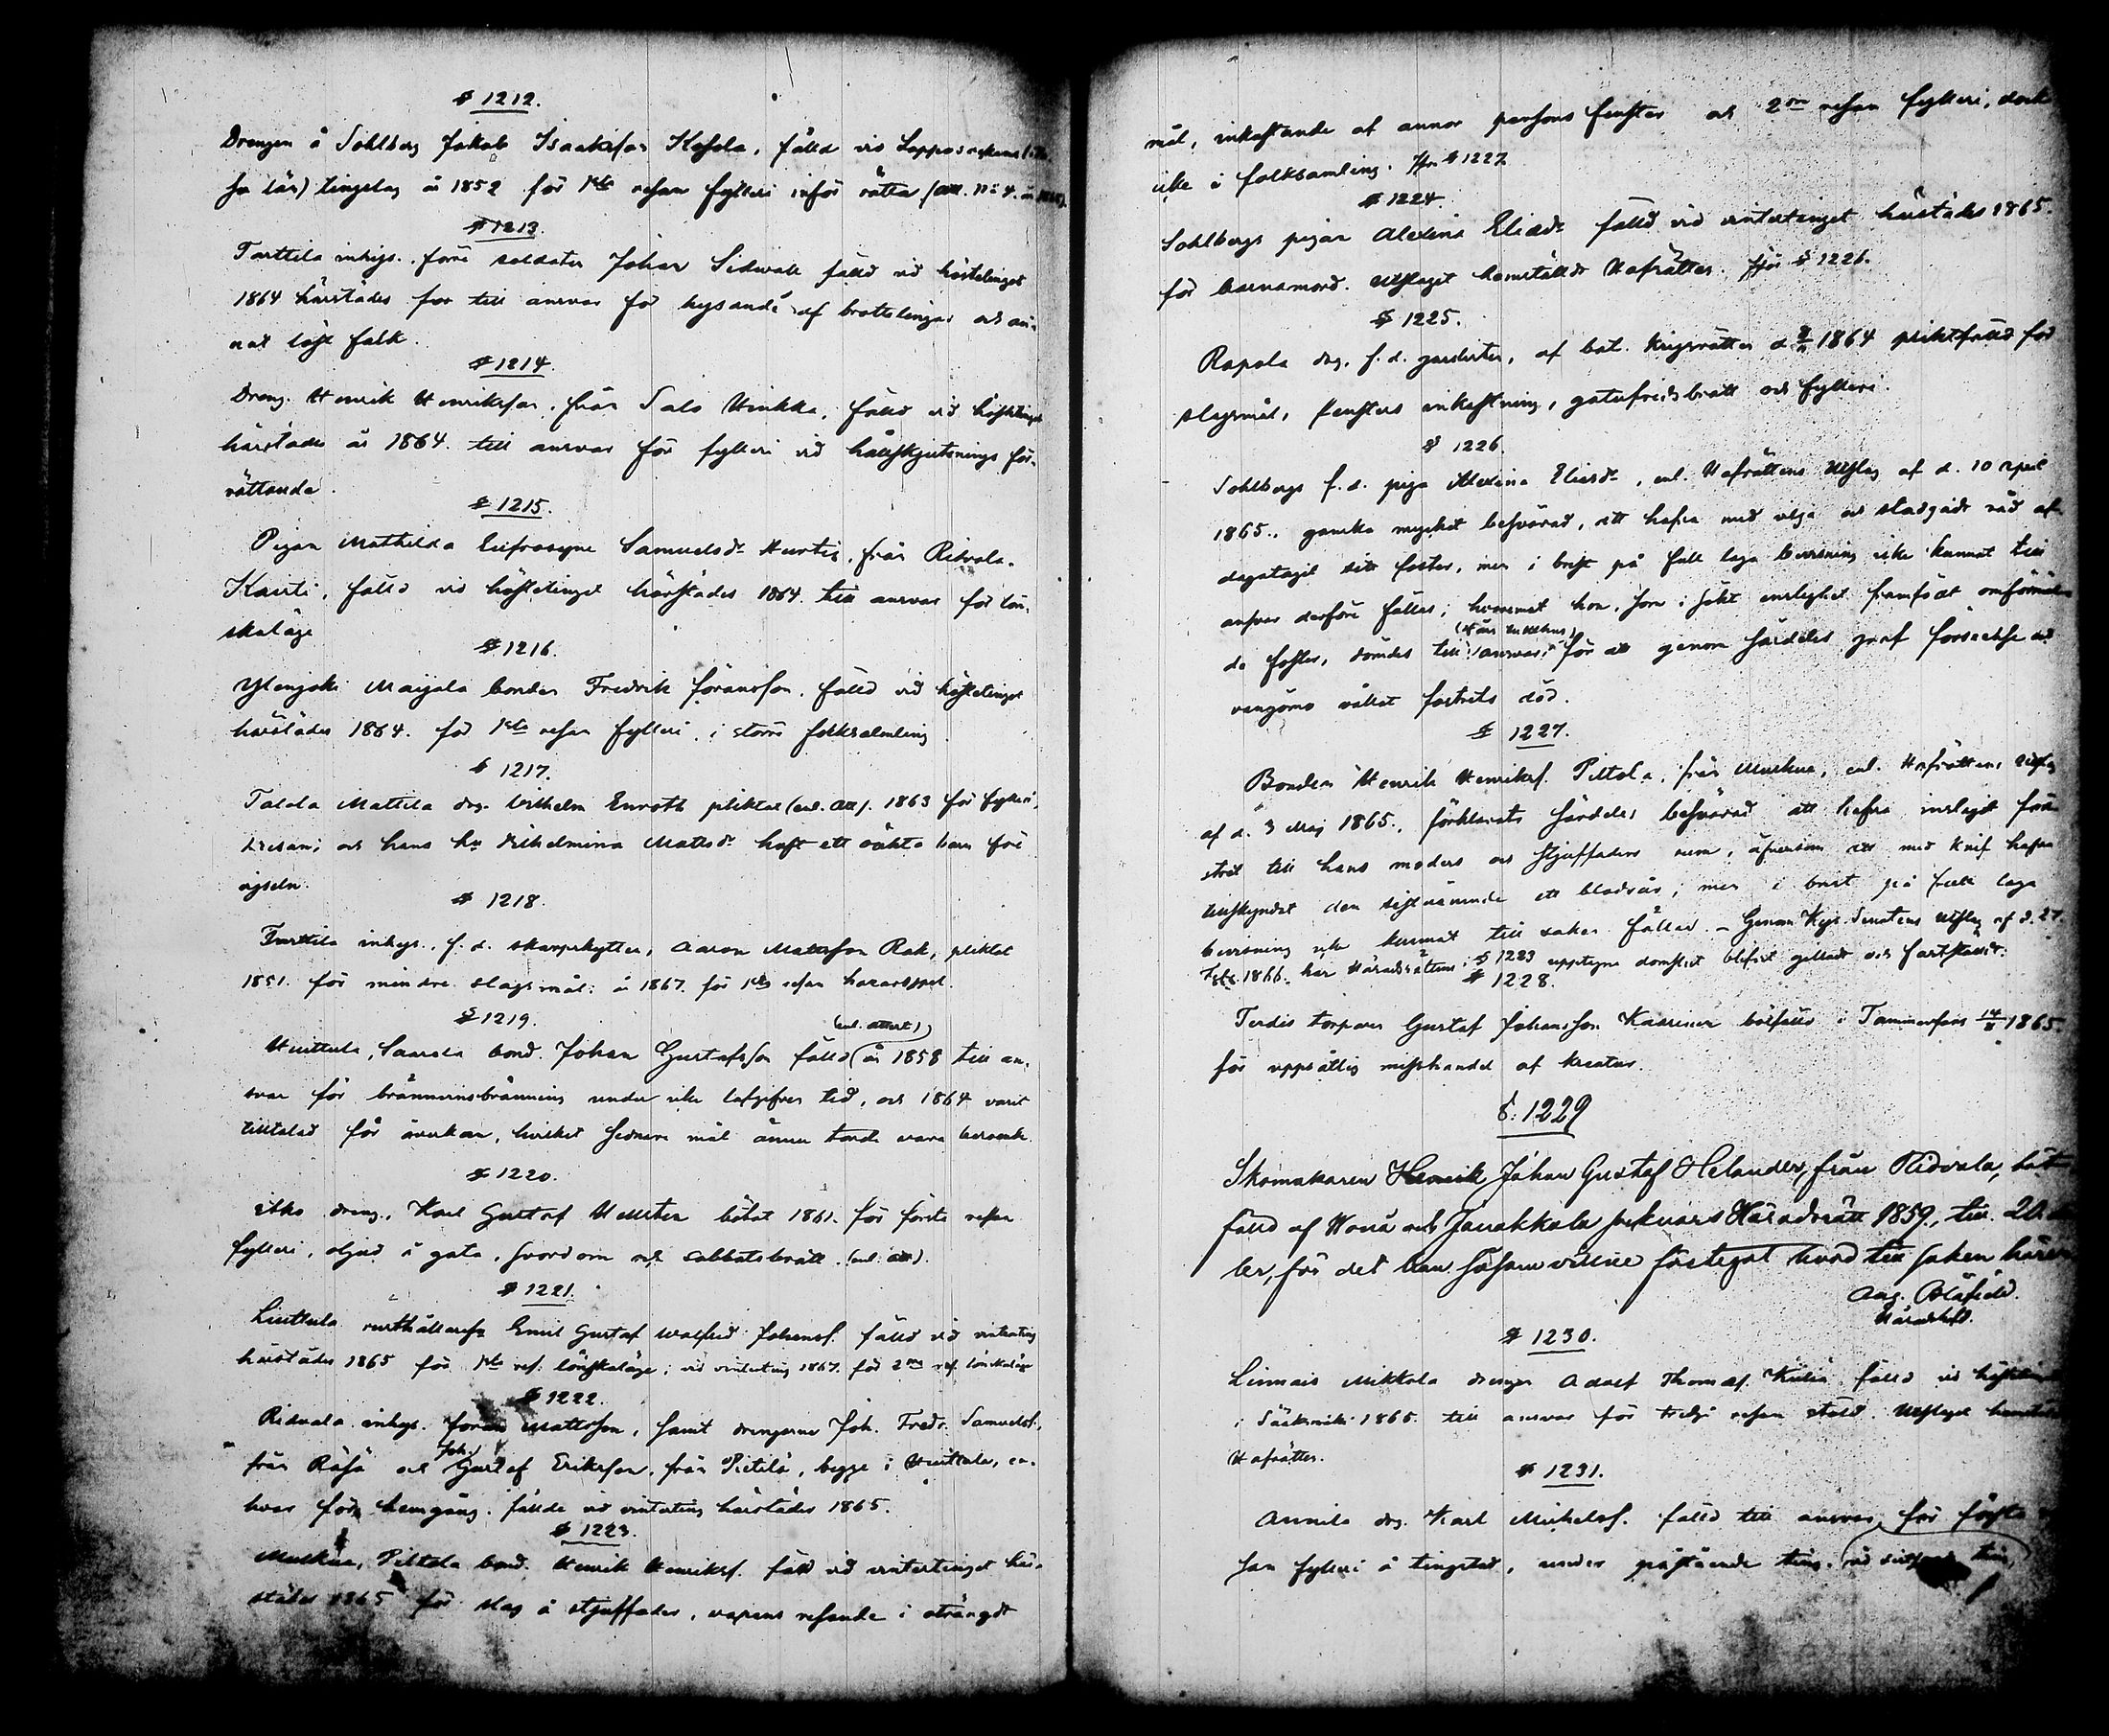 § 1212.
Drengen å Sohlberg Jakob Isaaksson Kosola, fälld vid Lappo sockens
sa län) tingslag år 1852 för 1sta resan fylleri inför rätta (att. N:o 4. år
§ 1213.
Tarttila inhys. förre soldaten Johan Sidwall fälld vid hösttinget
1864 härstädes för till ansvar för hysande af brottslingar och an-
nat löst folk.
§ 1214.
Dreng. Henrik Henriksson, från Salo Uinkka, fälld vid hösttinget
härstädes år 1864. till ansvar för fylleri vid hållskjutsnings för-
rättande.
§ 1215.
Pigan Mathilda Eufrosyne Samuelsdr Hurtig, från Ridvala.
Kauti, fälld vid hösttinget härstädes 1864. till ansvar för lön-
skaläge
§ 1216.
Ylenjoki Maijala bonden Fredrik Göransson, fälld vid hösttinget
härstädes 1864. för 1sta resan fylleri, i större folksamling.
§ 1217.
Talala Mattila drg. Vilhelm Enroth pliktat (enl. att). 1863 för fylleri,
2 resan; och hans hu Vilhelmina Mattsdr haft ett oäkta barn före
vigseln.
§ 1218.
Tarttila inhys. f. d. skarpskytten, Aaron Mattsson Rak, pliktat
1851. för mindre slagsmål: år 1867. för 1sta resan hazardspel.
§ 1219.
(enl. attest)
Huittula, Saarela bond. Johan Gustafsson fälld år 1858 till an-
svar för bränvinsbränning under icke lofgifven tid, och 1864 varit
tilltalad för åverkan, hvilket sednare mål ännu torde vara beroende.
§ 1220.
dreng. Karl Gustaf bötat 1861. för första resan
fylleri, oljud å gata, svordom och sabbatsbrott. (enl. att).
§ 1221.
Liuttula rusthållaresn Emil Gustaf Walfrid Johanss. fälld vid vinterting
härstädes 1865 för 1sta res. lönskaläge; vid vinterting 1867. för 2dra res. lönskaläge
§ 1222.
Ridvala inhys. Johan Mattsson, samt drengarne Joh. Fredr. Samuelss.
från Räsä och Joh. Gustaf Eriksson, från Pietilä, begge i Huittula, en-
hvar för hemgång. fällde vid vinterting härstädes 1865.
§ 1223.
Muskua, Piltola bond. Henrik Henrikss. fälld vid vintertinget här-
städes 1865 för slag å styffader, vapens resande i oträngdt
mål, inkastande af annor persons fenster och 2dra resan fylleri, dock
icke i folksamling. Jfr. § 1227.
§ 1224.
Sohlbergs pigan Alexina Eliædr fälld vid vintertinget härstädes 1865.
för barnamord. Utslaget hemställdt Hofrätten. Jför § 1226.
§ 1225.
Rapola drg. f. d. gardisten, af bat. krigsrätten d. 1864 pliktfälld för
slagsmål, fensters inkastning, gatufridsbrott och fylleri.
§ 1226.
Sohlbergs f. d. piga Alexina Eliesdr, enl. Hofrättens Utslag af d. 10 April
1865., ganska mycket besvärad, att hafva med vilja och stadgadt råd af-
dagatagit sitt foster, men i brist på full laga bevisning icke kunnat till
ansvar derföre fällas; hvaremot hon, som i sökt enslighet framfödt omförmäl-
da foster, dömdes till ansvar, för att genom särdeles grof förseelse och
vangömo vållat fostrets död.
§ 1227.
Bonden Henrik Henrikss. Piltola, från Muskua, enl. Hofrättens Utslag
af d. 3 Maj 1865., förklarats särdeles besvärad att hafva inslagit fön-
stret till hans moders och styffaders rum, äfvensom att med knif hafva
tillskyndat den sistnämnde ett blodsår; men i brist på full laga
bevisning icke kunnat till saken fällas. – Genom Kejs. Senatens Utslag af d. 27.
Feb. 1866. har Häradsrättens i § 1223 upptagne domslut blifvit gilladt och fastställdt.
§ 1228.
Terdis torparen Gustaf Johansson Kaarinen bötfälld i Tammerfors 1865.
för uppsåtlig misshandel af kreatur.
§: 1229
Skomakaren Henrik Johan Gustaf Helander, från Ridvala, böt-
fälld af Wonå och Janakkala socknars Häradsrätt 1859., till 20
ler, för det han såsom vittne förtegat hvad till saken hörer
Aug. Blåfield.
Häradshöfd.
§ 1230.
Linnais Mikkola drengen Adolf Thomass. Kiliä fälld vid hösttinget
i Sääksmäki 1865. till ansvar för tredje resan stöld. Utslaget hemställdt
Hofrätten.
§ 1231.
Annila drg. Karl Michelss. fälld till ansvar för första re-
san fylleri å tingstad, under påstående ting.